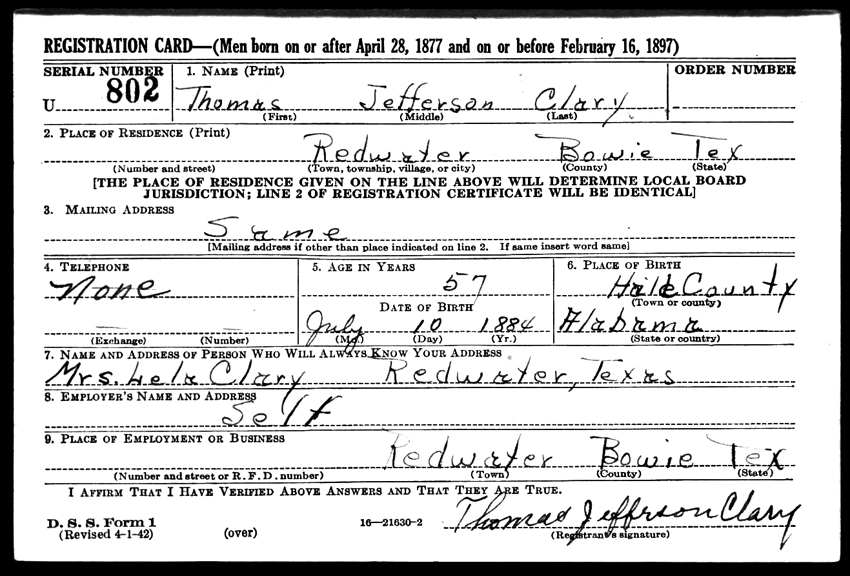 REGISTRATION CARD—(Men born on or after April 28, 1877 and on or before February 16, 1897)
SERIAL NUMBER 1. NAME (Print) ORDER NUMBER
U 802 Thomas Jefferson Clary
(First) (Middle) (Last)
2. PLACE OF RESIDENCE (Print)
Redwater Bowie Tex
(Number and street) (Town, township, village, or city) (County) (State)
[THE PLACE OF RESIDENCE GIVEN ON THE LINE ABOVE WILL DETERMINE LOCAL BOARD
JURISDICTION; LINE 2 OF REGISTRATION CERTIFICATE WILL BE IDENTICAL]
3. MAILING ADDRESS
Same
[Mailing address if other than place indicated on line 2. If same insert word same]
4. TELEPHONE 5. AGE IN YEARS 6. PLACE OF BIRTH
None 57 Hale County
DATE OF BIRTH (Town or county)
July 10 1884 Alabama
(Exchange) (Number) (Mo.) (Day) (Yr.) (State or country)
7. NAME AND ADDRESS OF PERSON WHO WILL ALWAYS KNOW YOUR ADDRESS
Mrs. Lela Clary Redwater, Texas
8. EMPLOYER'S NAME AND ADDRESS
Self
9. PLACE OF EMPLOYMENT OR BUSINESS
Redwater Bowie Tex
(Number and street or R. F. D. number) (Town) (County) (State)
I AFFIRM THAT I HAVE VERIFIED ABOVE ANSWERS AND THAT THEY ARE TRUE.
D. S. S. Form 1 16—21630-2 Thomas Jefferson Clary
(Revised 4-1-42) (over) (Registrant's signature)